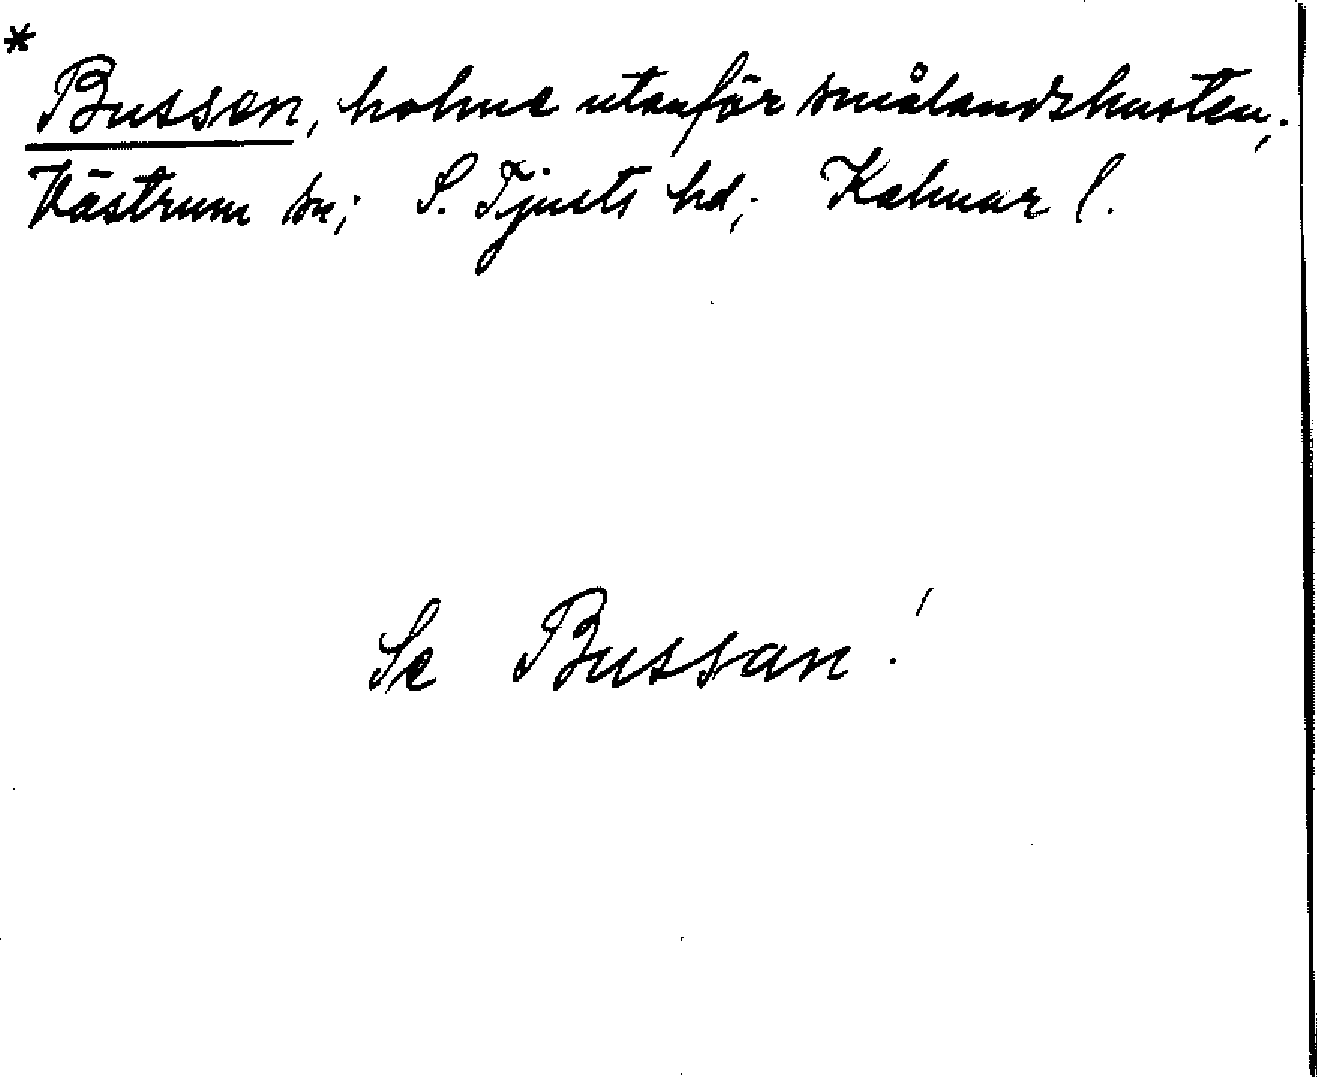 * Bussen, holme utanför smålandskusten;
Västrum sn; S. Tjusts hd; Kalmar l.
Se Bussan!